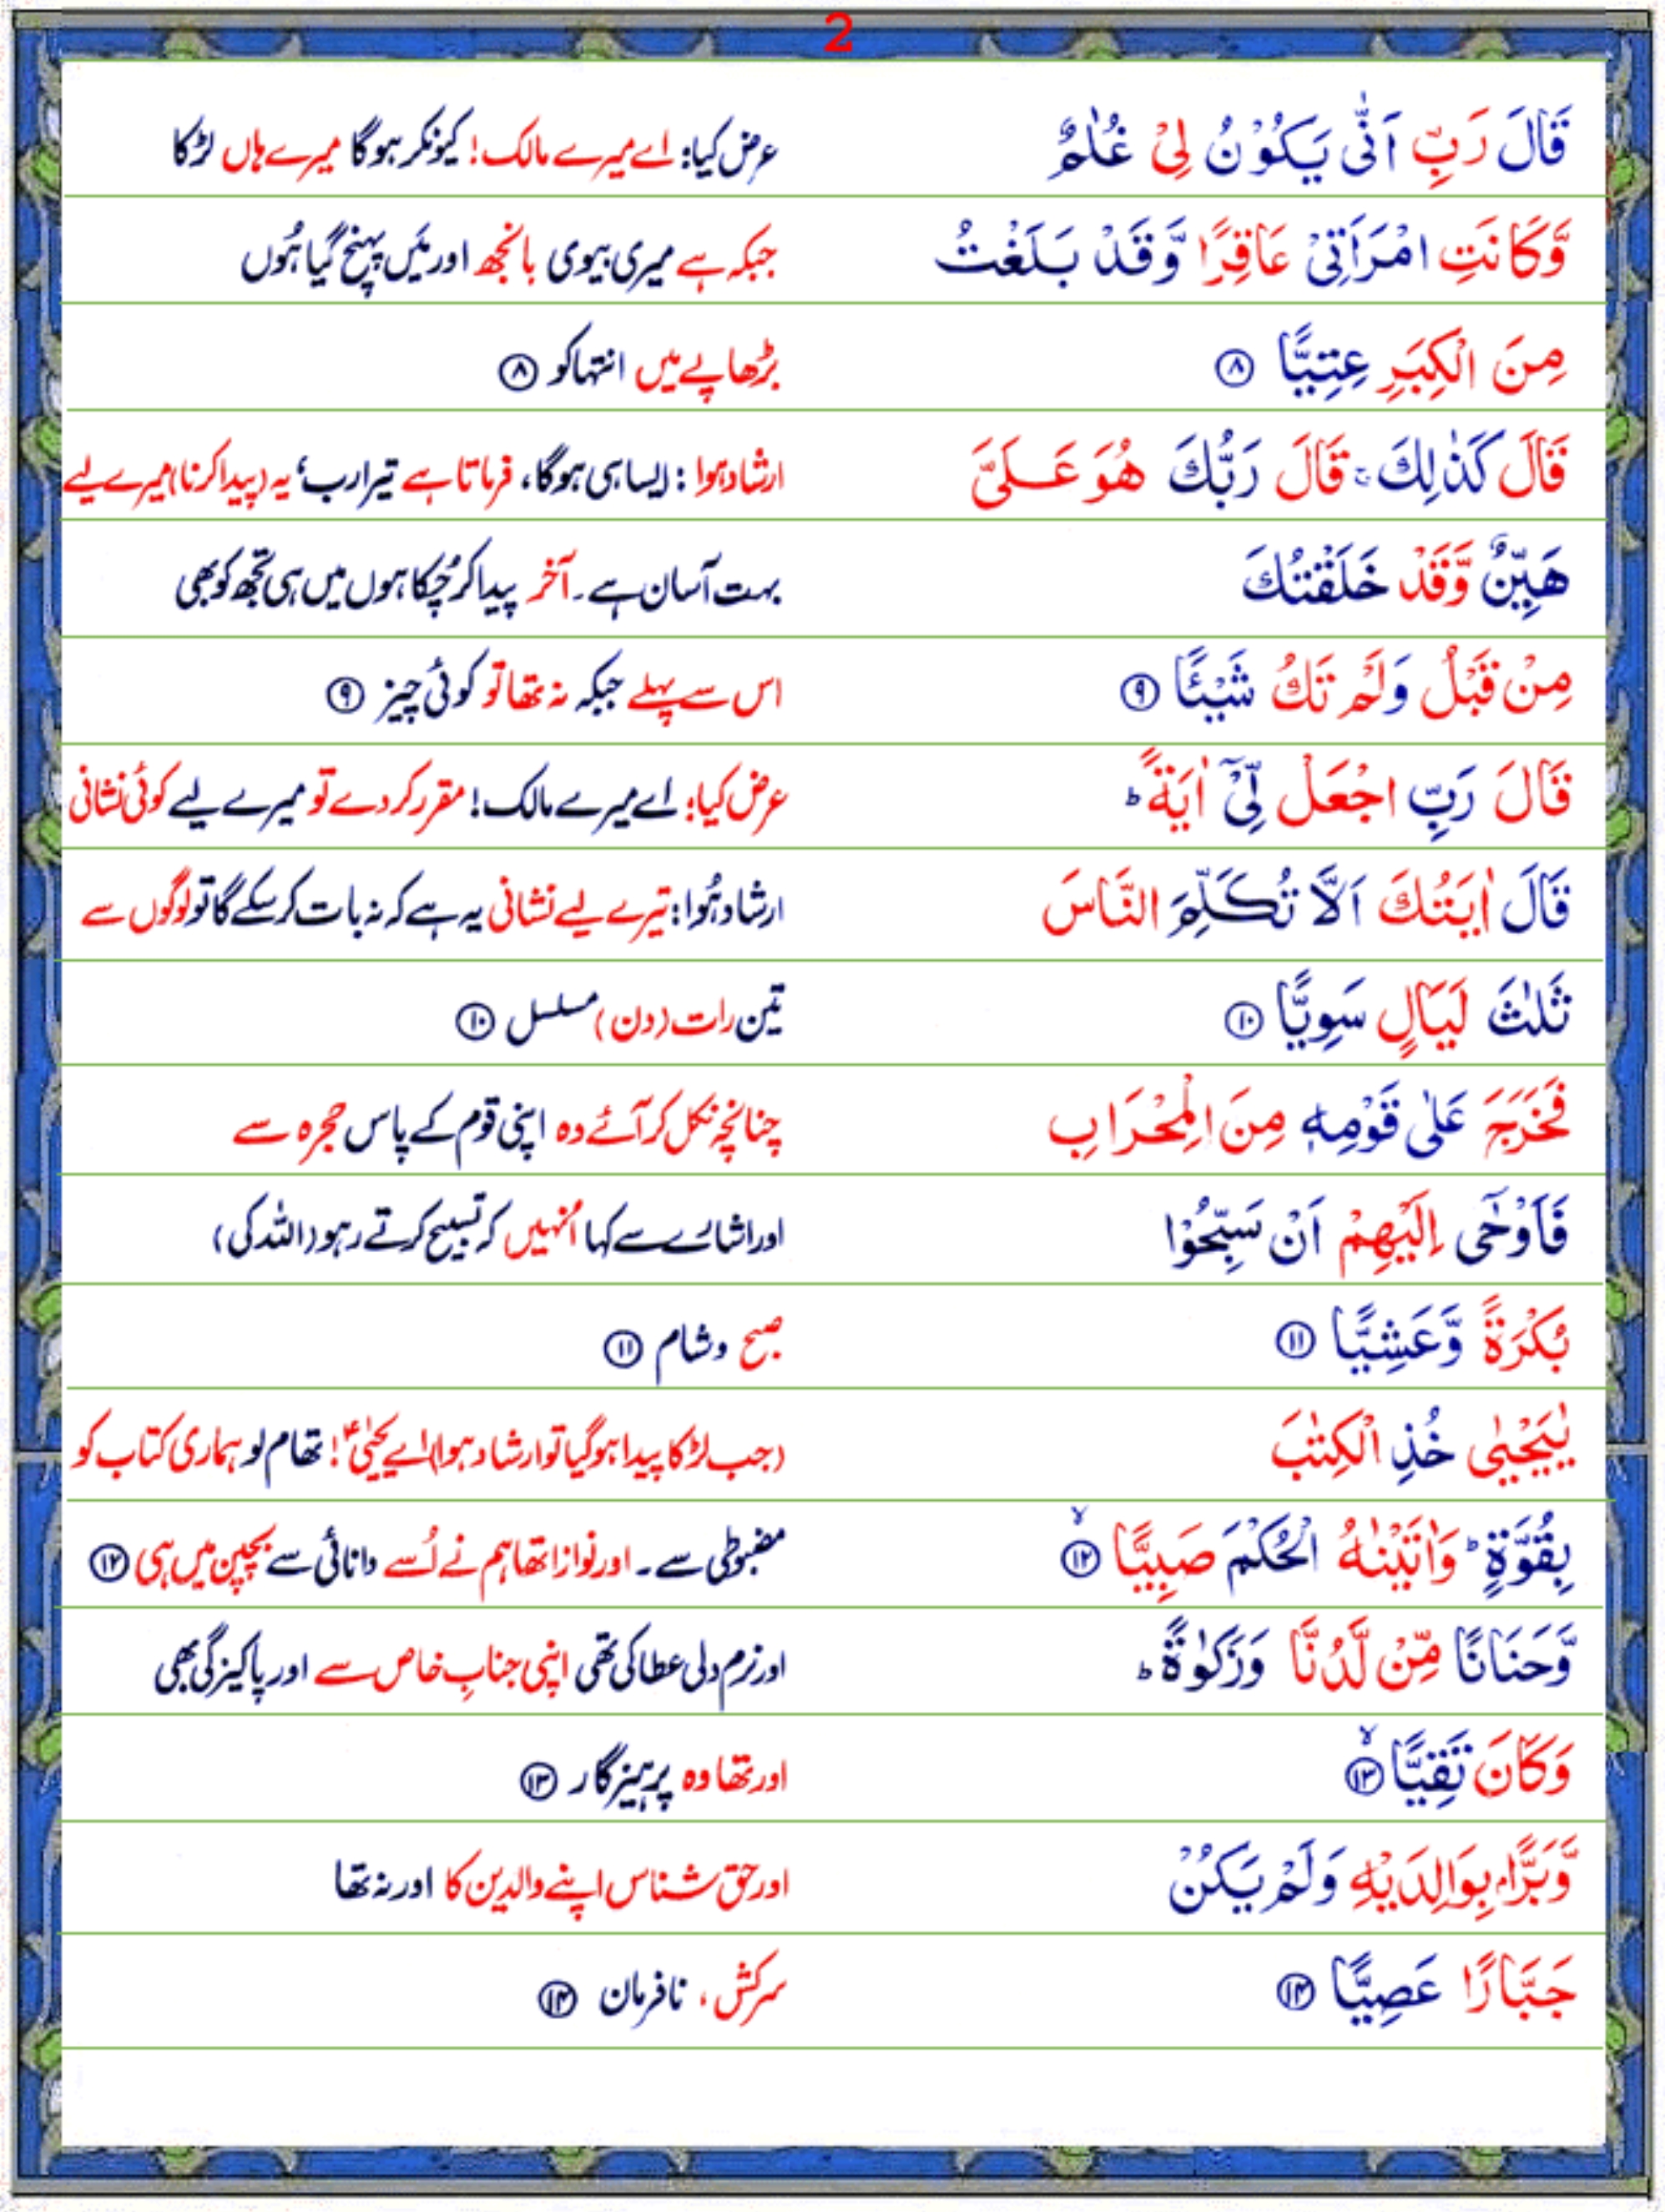 2
قَالَ رَبِّ اَنّٰى يَكُوْنُ لِىْ غُلٰمٌ عرض کیا: اے میرے مالک! کیونکر ہوگا میرے ہاں لڑکا
وَّكَانَتِ امْرَاَتِىْ عَاقِرًا وَّقَدْ بَلَغْتُ جبکہ ہے میری بیوی بانجھ اور مَیں پہنچ گیا ہُوں
مِنَ الْكِبَرِ عِتِيًّا ۝۸ بڑھاپے میں انتہا کو ۝۸
قَالَ كَذٰلِكَ ۚ قَالَ رَبُّكَ هُوَ عَلَىَّ ارشاد ہوا : ایسا ہی ہوگا، فرماتا ہے تیرا رب، یہ (پیدا کرنا) میرے لیے
هَيِّنٌ وَّقَدْ خَلَقْتُكَ بہت آسان ہے۔ آخر پیدا کر چُکا ہوں میں ہی تجھ کو بھی
مِنْ قَبْلُ وَلَمْ تَكُ شَيْئًا ۝۹ اس سے پہلے جبکہ نہ تھا تو کوئی چیز ۝۹
قَالَ رَبِّ اجْعَلْ لِّىْٓ اٰيَةً ؕ عرض کیا: اے میرے مالک! مقرر کر دے تو میرے لیے کوئی نشانی
قَالَ اٰيَتُكَ اَلَّا تُكَلِّمَ النَّاسَ ارشاد ہُوا: تیرے لیے نشانی یہ ہے کہ نہ بات کر سکے گا تو لوگوں سے
ثَلٰثَ لَيَالٍ سَوِيًّا ۝۱۰ تین رات (دن) مسلسل ۝۱۰
فَخَرَجَ عَلٰى قَوْمِهٖ مِنَ الْمِحْرَابِ چنانچہ نکل کر آئے وہ اپنی قوم کے پاس حجرہ سے
فَاَوْحٰٓى اِلَيْهِمْ اَنْ سَبِّحُوْا اور اشارے سے کہا اُنہیں کہ تسبیح کرتے رہو (اللہ کی)
بُكْرَةً وَّعَشِيًّا ۝۱۱ صبح و شام ۝۱۱
يٰيَحْيٰى خُذِ الْكِتٰبَ (جب لڑکا پیدا ہوگیا تو ارشاد ہوا) اے یحیٰیؑ! تھام لو ہماری کتاب کو
بِقُوَّةٍ ؕ وَاٰتَيْنٰهُ الْحُكْمَ صَبِيًّا ۝۱۲ۙ مضبوطی سے۔ اور نوازا تھا ہم نے اُسے دانائی سے بچپن میں ہی ۝۱۲
وَّحَنَانًا مِّنْ لَّدُنَّا وَزَكٰوةً ؕ اور نرم دلی عطا کی تھی اپنی جنابِ خاص سے اور پاکیزگی بھی
وَكَانَ تَقِيًّا ۝۱۳ۙ اور تھا وہ پرہیزگار ۝۱۳
وَّبَرًّۢا بِوَالِدَيْهِ وَلَمْ يَكُنْ اور حق شناس اپنے والدین کا اور نہ تھا
جَبَّارًا عَصِيًّا ۝۱۴ سرکش، نافرمان ۝۱۴